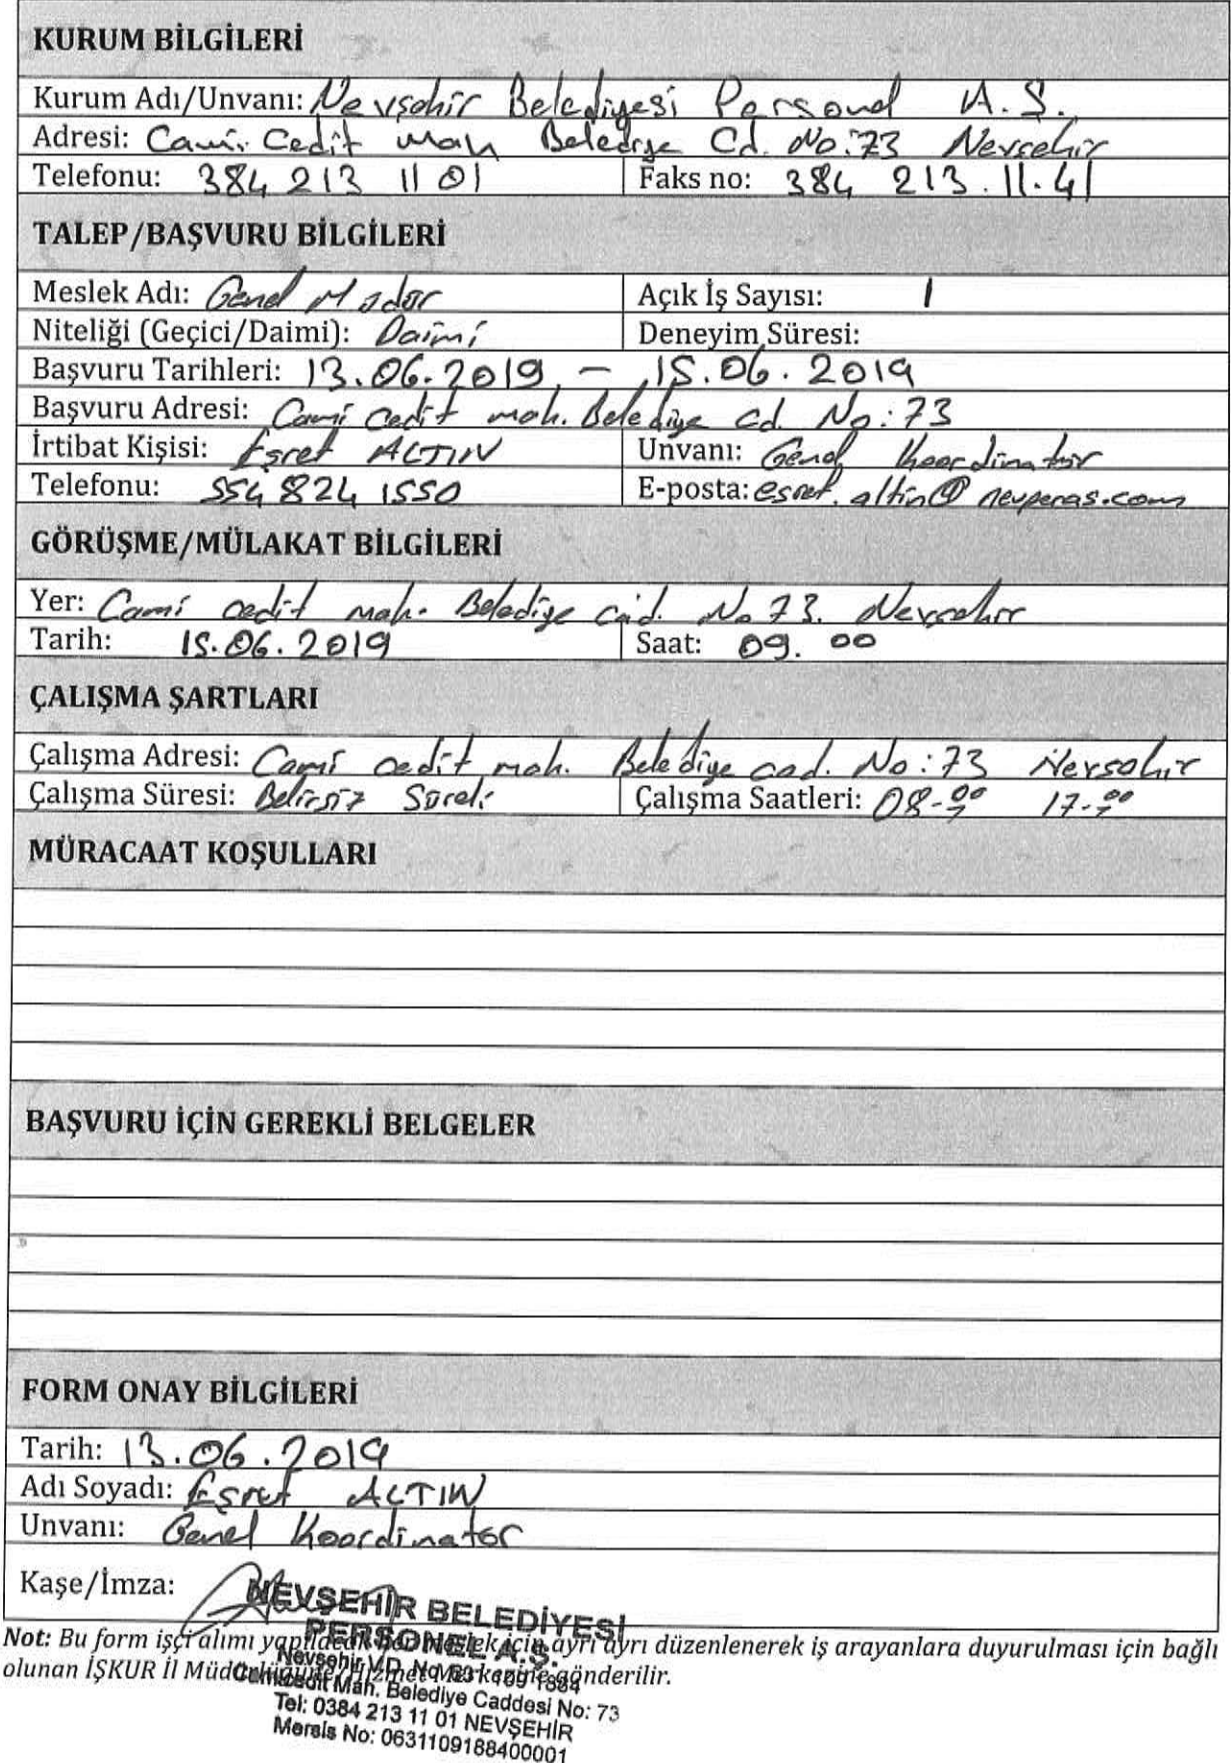 KURUM BİLGİLERİ
Kurum Adı/Unvanı: Nevşehir Belediyesi Personel A.Ş.
Adresi: Cami Cedit mah Belediye Cd. No:73 Nevşehir
Telefonu: 384 213 11 01 Faks no: 384 213.11.41
TALEP/BAŞVURU BİLGİLERİ
Meslek Adı: Genel Müdür Açık İş Sayısı: 1
Niteliği (Geçici/Daimi): Daimi Deneyim Süresi:
Başvuru Tarihleri: 13.06.2019 - 15.06.2019
Başvuru Adresi: Cami cedit mah. Belediye cd. No:73
İrtibat Kişisi: Eşref ALTIN Unvanı: Genel Koordinatör
Telefonu: 554 824 1550 E-posta: esref.altin@nevperas.com
GÖRÜŞME/MÜLAKAT BİLGİLERİ
Yer: Cami cedit mah. Belediye cad. No 73. Nevşehir
Tarih: 15.06.2019 Saat: 09.00
ÇALIŞMA ŞARTLARI
Çalışma Adresi: Cami cedit mah. Belediye cad. No:73 Nevşehir
Çalışma Süresi: Belirsiz Süreli Çalışma Saatleri: 08-00 17-00
MÜRACAAT KOŞULLARI
BAŞVURU İÇİN GEREKLİ BELGELER
FORM ONAY BİLGİLERİ
Tarih: 13.06.2019
Adı Soyadı: Eşref ALTIN
Unvanı: Genel Koordinatör
Kaşe/İmza:
NEVŞEHİR BELEDİYESİ
PERSONEL A.Ş.
Not: Bu form işçi alımı yapılacak her meslek için ayrı ayrı düzenlenerek iş arayanlara duyurulması için bağlı
olunan İŞKUR İl Müdürlüğüne/Hizmet Merkezine gönderilir.
Nevşehir V.D. No: 631 109 1884
Camicedit Mah. Belediye Caddesi No: 73
Tel: 0384 213 11 01 NEVŞEHİR
Mersis No: 0631109188400001